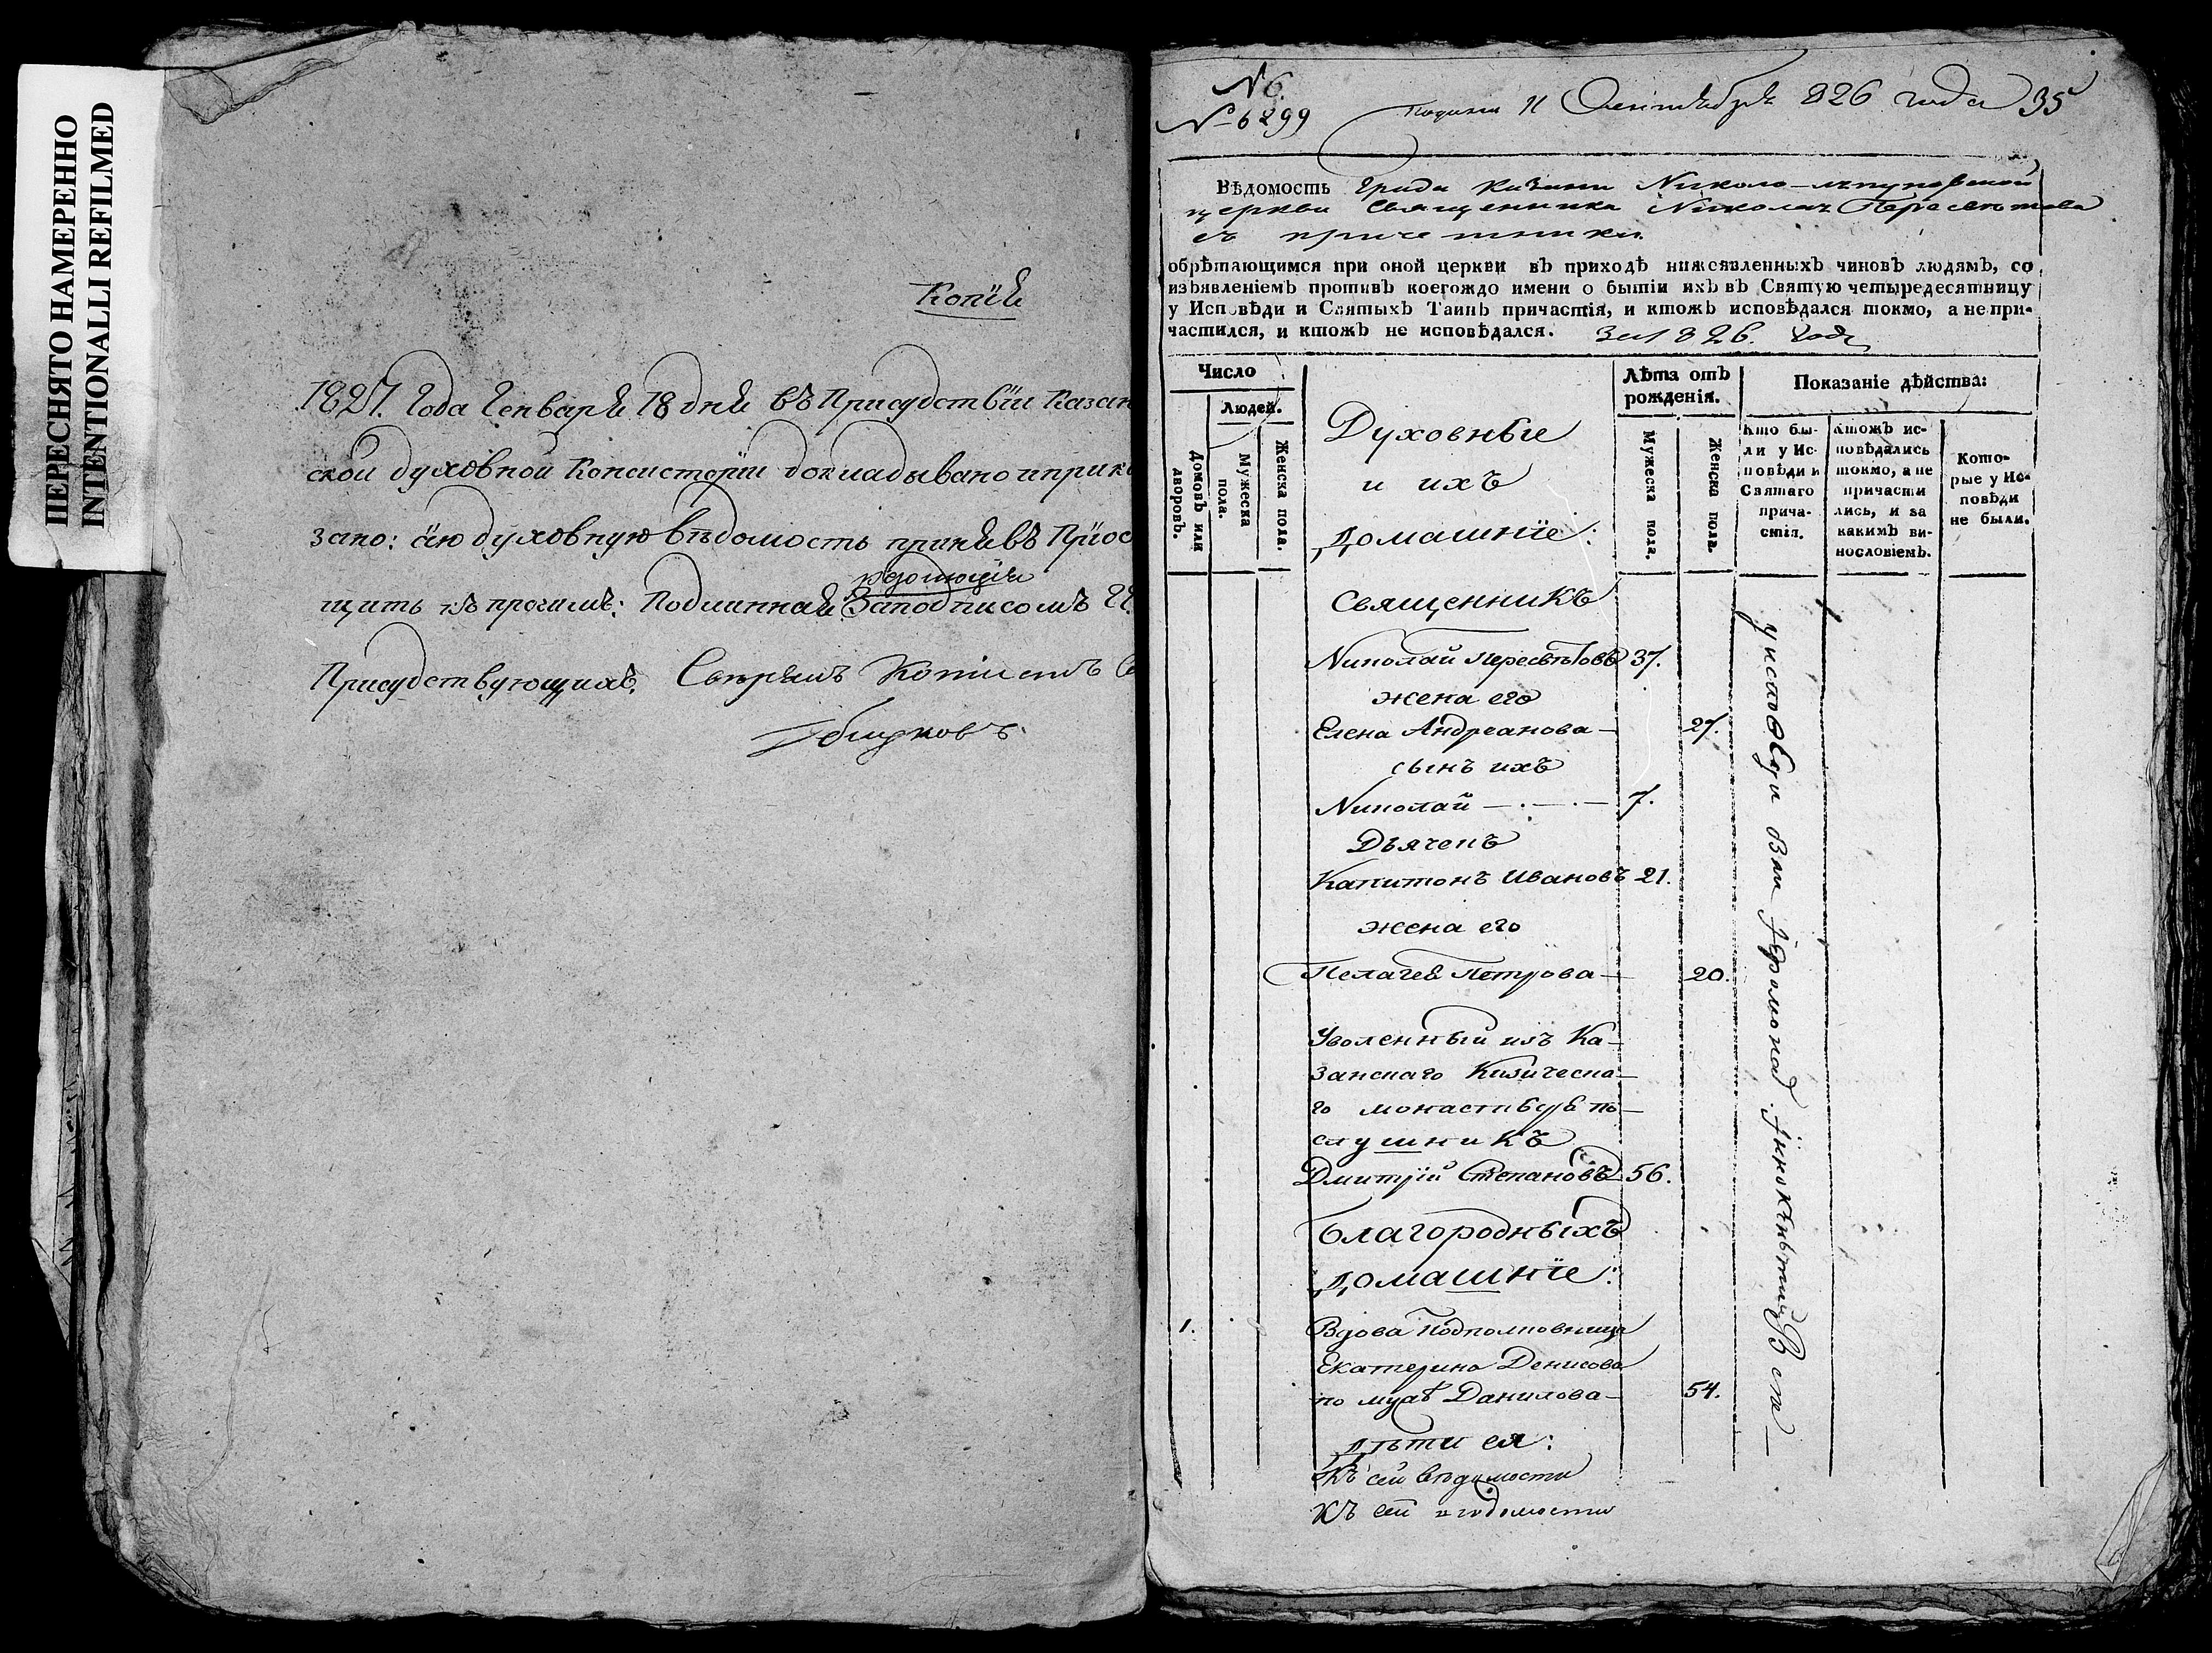 ПЕРЕСНЯТО НАМЕРЕННО
INTENTIONALLI REFILMED
Копія
1827. Года Генваря 18 дня въ Присудствіи Казан
ской духовной Консисторіи докладывано и прика
зано: сію духовную вѣдомость принявъ Пріоб
резолюція
щить къ прочимъ: Подлинная За подписомъ Гг.
Присудствующихъ. Свѣрялъ Копіистъ
№ 6.
№ 6299
Подана 11 Сентября 826 года 35
Вѣдомость Града Казани Николо-
церкви Священника Николая Пересвѣтова
съ причетники
обрѣтающимся при оной церкви въ приходѣ нижеявленныхъ чиновъ людямъ, со
изъявленіемъ противъ коегождо имени о бытіи ихъ въ Святую четыредесятницу
у Исповѣди и Святыхъ Таинъ причастія, и ктожъ исповѣдался токмо, а не при-
частился, и ктожъ не исповѣдался. За 1826. Годъ
Число
Людей.
Домовъ или дворовъ.
Мужеска пола.
Женска пола.
Духовные
и ихъ
домашніе:
Лѣта отъ рожденія.
Мужеска пола.
Женска пола.
Показаніе дѣйства:
Кто бы-
ли у Ис-
повѣди и
Святаго
прича-
стія.
Ктожъ ис-
повѣдались
токмо, а не
причасти
лись, и за
какимъ ви-
нословіемъ.
Кото-
рые у Ис-
повѣди
не были.
Священникъ
Николай Пересвѣтовъ 37.
жена его
Елена Андреанова — 27.
сынъ ихъ
Николай — . — . — 7.
Дьячекъ
Капитонъ Ивановъ 21.
жена его
Пелагея Петрова — 20.
Уволенный изъ Ка-
занскаго Кизическа-
го монастыря по-
слушникъ
Дмитрій Степановъ 56.
Благородныхъ
домашніе:
1. Вдова Подполковница
Екатерина Денисова
по мужѣ Данилова — 54.
дѣти ея:
Къ сей вѣдомости
Къ сей вѣдомости
у исповѣди